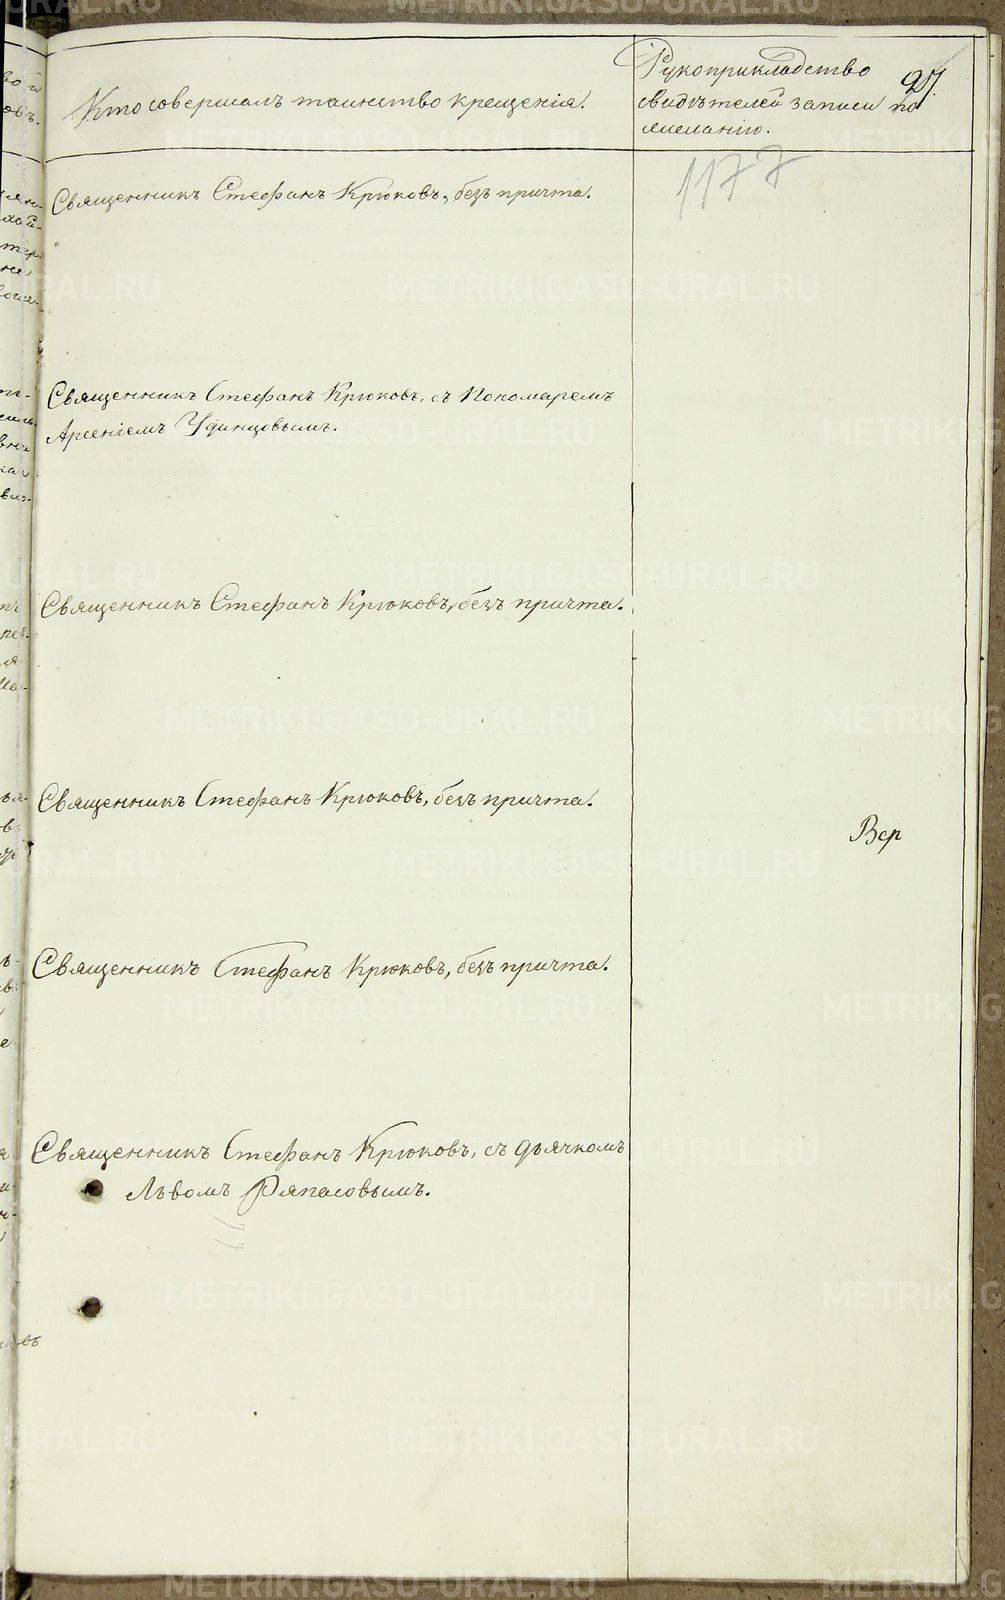 Кто совершалъ таинство крещенія.
Рукоприкладство
свидѣтелей записи по
желанію.
27.
1177
Священникъ Стефанъ Крюковъ, безъ причта.
Священникъ Стефанъ Крюковъ, съ пономаремъ
Арсеніемъ Удинцовымъ.
Священникъ Стефанъ Крюковъ, безъ причта.
Священникъ Стефанъ Крюковъ, безъ причта.
Вср
Священникъ Стефанъ Крюковъ, безъ причта.
Священникъ Стефанъ Крюковъ, съ дьячкомъ
Львомъ Ряпасовымъ.
METRIKI.GASO-URAL.RU